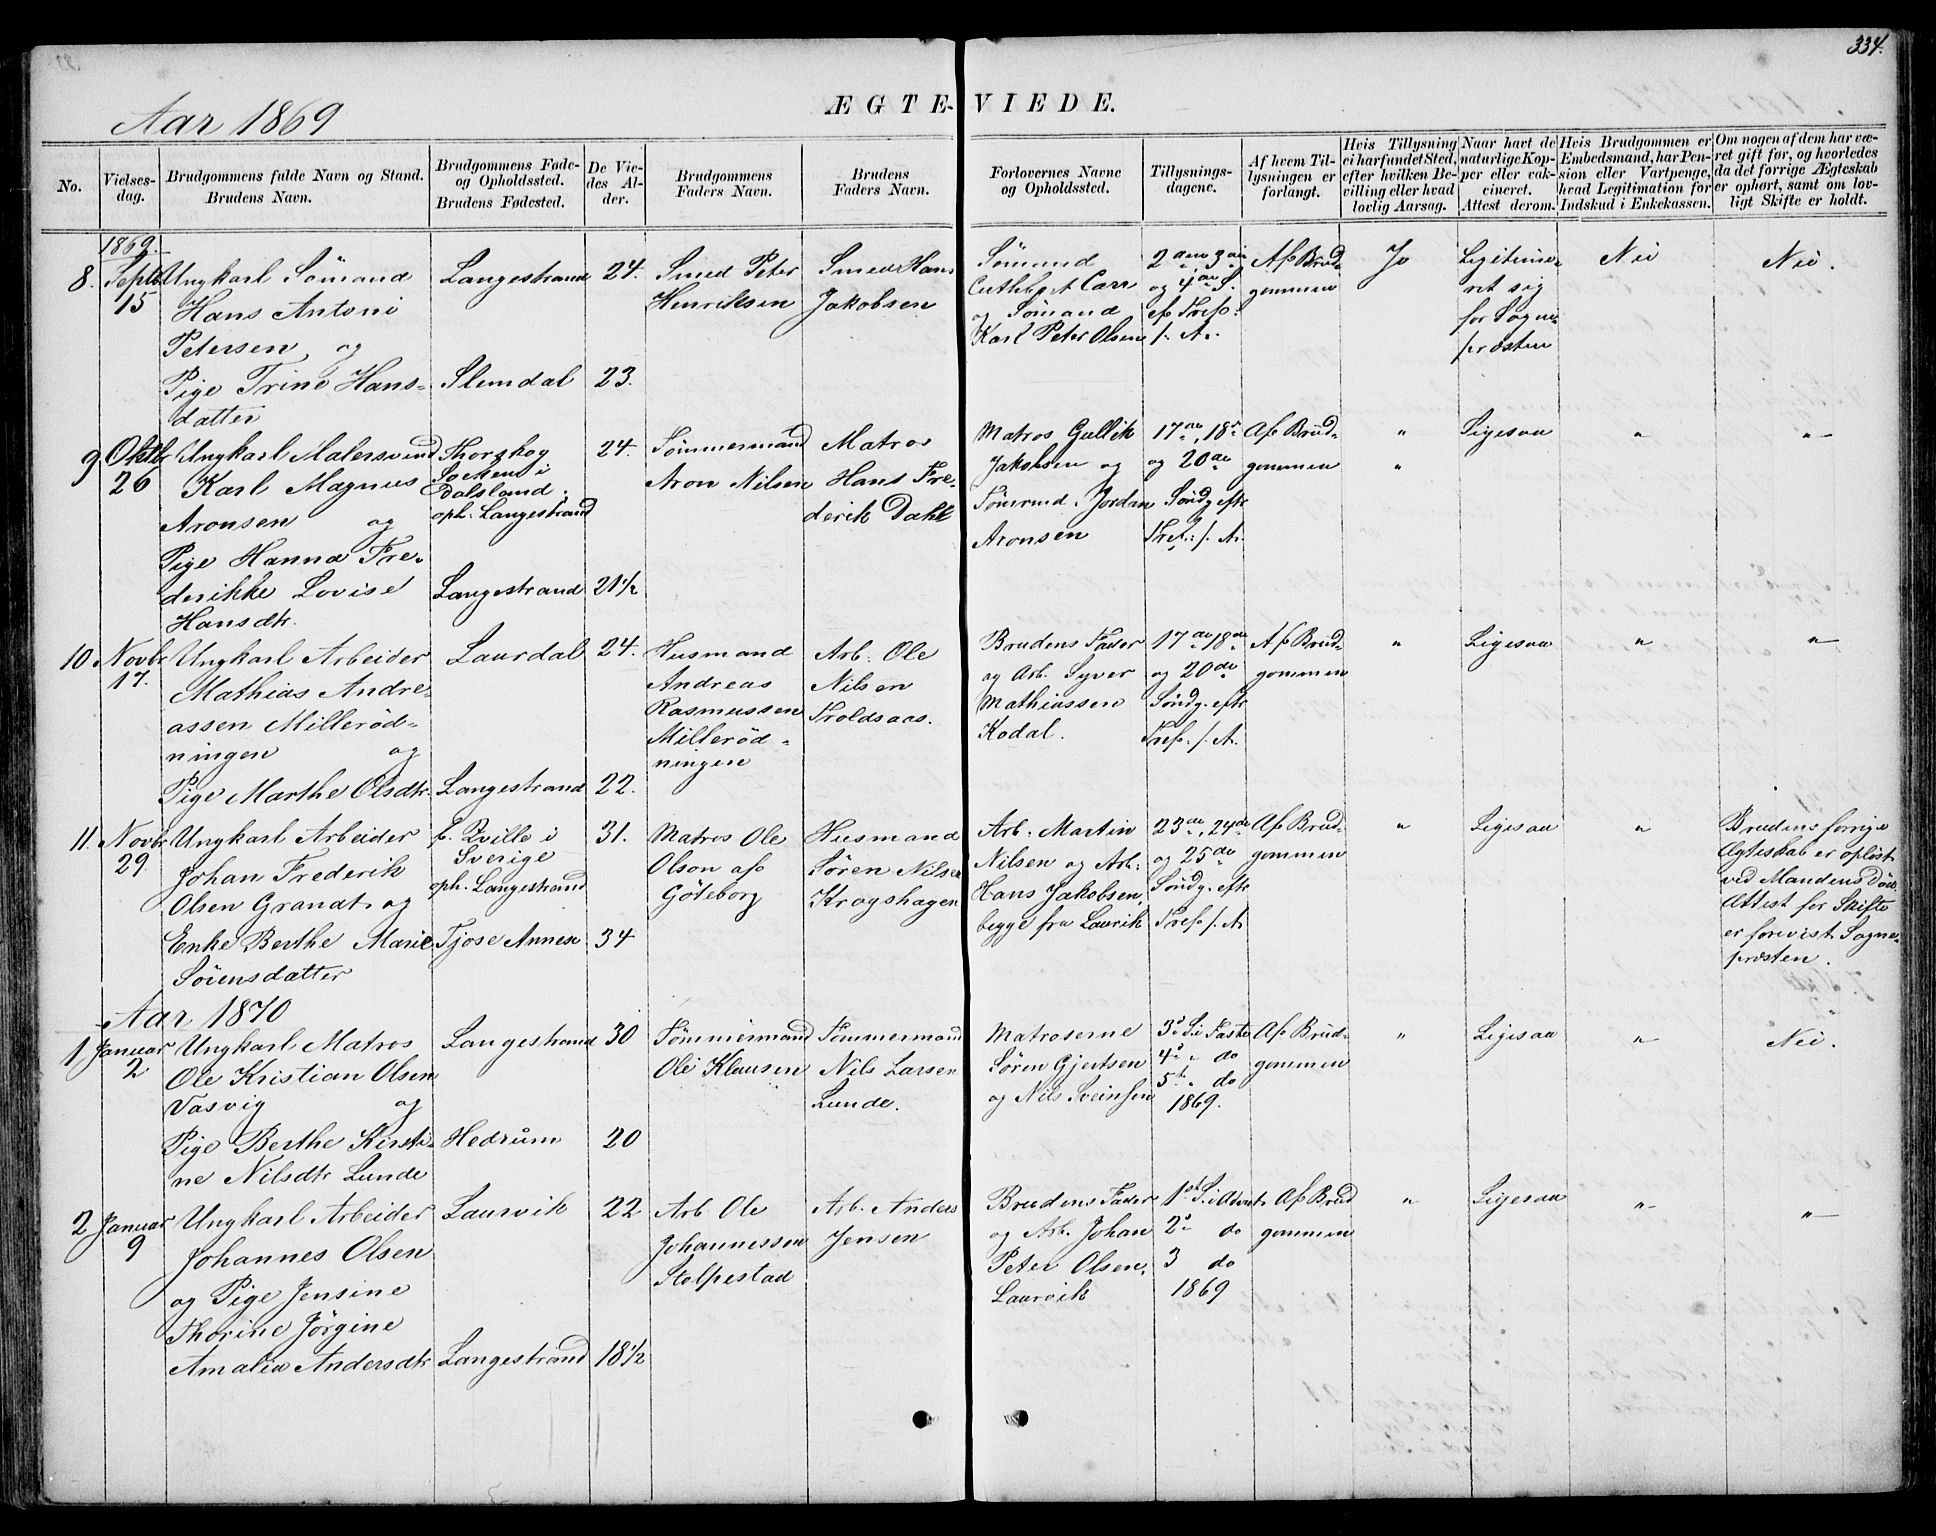 334.
Aar 1869
ÆGTE-VIEDE.
No.
Vielses-
dag.
Brudgommens fulde Navn og Stand.
Brudens Navn.
Brudgommens Føde-
og Opholdssted.
Brudens Fødested.
De Vie-
des Al-
der.
Brudgommens
Faders Navn.
Brudens
Faders Navn.
Forlovernes Navne
og Opholdssted.
Tillysnings-
dagene.
Af hvem Til-
lysningen er
forlangt.
Hvis Tillysning
ei har fundet Sted,
efter hvilken Be-
villing eller hvad
lovlig Aarsag.
Naar havt de
naturlige Kop-
per eller vak-
cineret.
Attest derom.
Hvis Brudgommen er
Embedsmand, har Pen-
sion eller Vartpenge,
hvad Legitimation for
Indskud i Enkekassen.
Om nogen af dem har væ-
ret gift før, og hvorledes
da det forrige Ægteskab
er ophørt, samt om lov-
ligt Skifte er holdt.
1869.
8.
Septb
15
Ungkarl Sömand
Hans Antoni
Petersen og
Pige Trine Hans-
datter
Langestrand
Slemdal
24.
23.
Smed Peter
Henriksen
Smed Hans
Jakobsen
Sömand
Cuthbert Carr
og Sömand
Karl Peter Olsen
2den 3die
og 4de S.
ef Tref:
s. A.
Af Brud-
gommen
Jo
Legitime-
ret sig
for Sogne-
præsten
Nei
Nei.
9
Oktbr
26
Ungkarl Malersvend
Karl Magnus
Aronsen og
Pige Hanna Fre-
derikke Lovise
Hansdtr.
Thorskog
Socken i
Dalsland.
oph. Langestrand
Langestrand
24.
21 1/2
Tømmermand
Aron Nilsen
Matros
Hans Fre-
derik Dahl
Matros Gullik
Jakobsen og
Tömrmd. Jordan
Aronsen
17de, 18de
og 20de
Söndg. eftr
Tref: s. A.
Af Brud-
gommen
"
"
Ligesaa
"
"
10
Novbr
17.
Ungkarl Arbeider
Mathias Andre-
assen Milleröd-
ningen og
Pige Marthe Olsdtr.
Laurdal
Langestrand
24.
22.
Husmand
Andreas
Rasmussen
Milleröd-
ningen
Arb. Ole
Nilsen
Troldsaas.
Brudens Fader
og Arb. Syver
Mathiassen
Kodal.
17de 18de
og 20de
Söndg. eftr
Tref. s. A.
Af Brud-
gommen
"
Ligesaa
"
"
11.
Novbr
29.
Ungkarl Arbeider
Johan Frederik
Olsen Granat og
Enke Berthe Marie
Sörensdatter
f. Qville i
Sverige
oph. Langestrand
Tjose Annex
31.
34
Matros Ole
Olson af
Göteborg
Husmand
Sören Nilsen
Kragshagen
Arb. Martin
Nilsen og Arb:
Hans Jakobsen,
begge fra Laurvik
23de, 24de
og 25de
Söndg. eftr
Tref s. A.
Af Brud-
gommen
"
Ligesaa
"
Brudens forrige
Ægteskab er oplöst
ved Mandens Död.
Attest for Skifte
er forevist Sogne-
præsten.
Aar 1870
1
Januar
2
Ungkarl Matros
Ole Kristian Olsen
Vasvig og
Pige Berthe Kirsti-
ne Nilsdtr Lunde
Langestrand
Hedrum
30
20
Tømmermand
Ole Klausen
Tømmermand
Nils Larsen
Lunde.
Matroserne
Sören Gjertsen
og Nils Sveinsen
3d S. i Faste
4d " do
5t " do
1869.
Af Brud-
gommen
"
Ligesaa
"
Nei.
2
Januar
9
Ungkarl Arbeider
Johannes Olsen
og Pige Jensine
Thorine Jörgine
Amalia Andersdtr
Laurvik
Langestrand
22
18 1/2
Arb Ole
Johannessen
Stolpestad
Arb. Anders
Jensen
Brudens Fader
og Arb. Johan
Peter Olsen,
Laurvik
1st S. i Advent
2d do
3 do
1869
Af Brud
gommen
"
Ligesaa
"
"